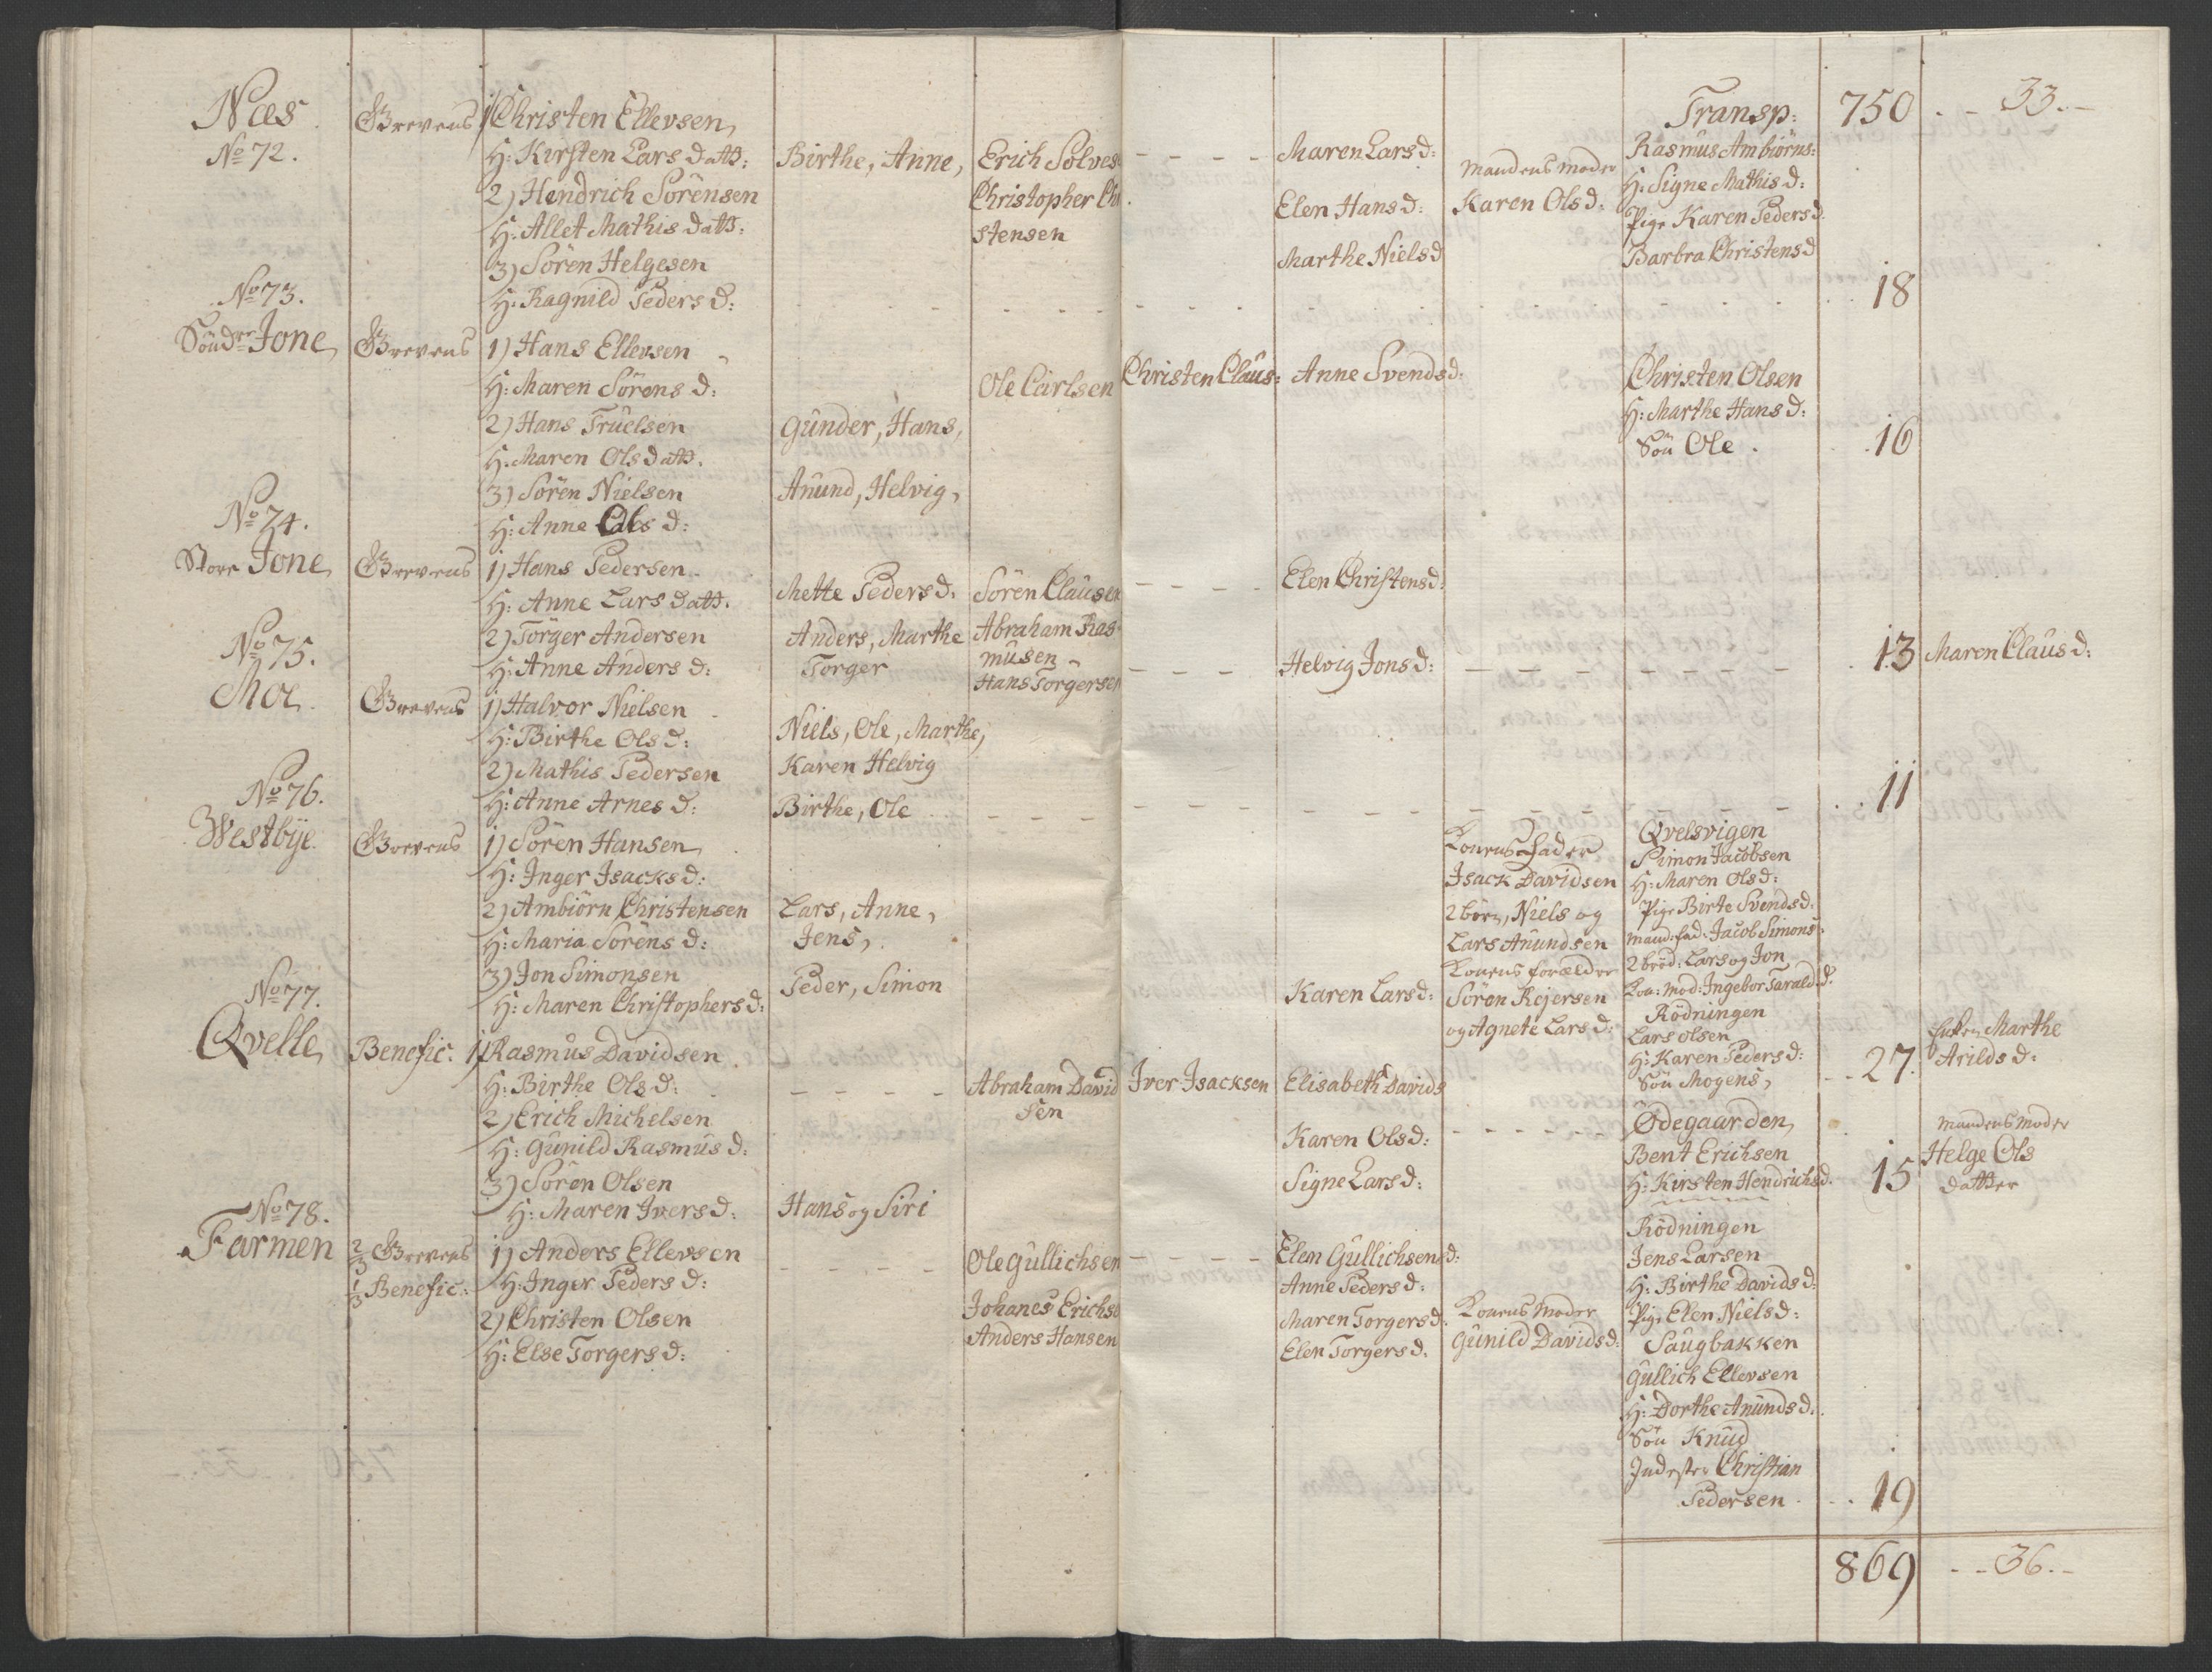 Næs
No 72.
Grevens
1) Christen Ellevsen,
H: Kirsten Lars datt:
2) Hendrich Sörensen
H: Allet Mathis datt:
3) Sören Helgesen
H: Ragnild Peders d:
Birthe, Anne,
Erich Solves
Christopher Chri
stensen
Maren Lars d:
Elen Hans d:
Marthe Niels d
Mandens Moder
Karen Ols d:
Transp:
Rasmus Ambiörns:
H: Signe Mathis d:
Pige Karen Peders d:
Barbra Christens d
750
33.
18
No 73.
Söndre Jone,
Grevens
1) Hans Ellevsen
H: Maren Sörens d:
2) Hans Truelsen
H: Maren Ols datt.
3) Sören Nielsen
H: Anne Ols d:
Gunder, Hans,
Anund, Helvig,
Ole Carlsen
Christen Claus:
Anne Svends d:
Christen Olsen
H: Marthe Hans d:
Sön Ole.
16
No 74.
Store Jone,
Grevens
1) Hans Pedersen
H: Anne Lars datt.
2) Torger Andersen
H: Anne Anders d:
Mette Peders d:
Anders, Marthe
Torger
Sören Clausen
Abraham Ras
musen
Hans Torgersen
Elen Christens d:
Helvig Jons d:
13
Maren Claus d:
No 75.
Moe
Grevens
1) Halvor Nielsen
H: Birthe Ols d:
2) Mathis Pedersen
H: Anne Arnes d:
Niels, Ole, Marthe,
Karen Helvig
Birthe, Ole
11
No 76.
Westbye
Grevens
1) Sören Hansen,
H: Inger Isacks d:
2) Ambiörn Christensen
H: Maria Sörens d:
3) Jon Simonsen
H: Maren Christophers d:
Lars, Anne,
Jens,
Peder, Simon
Karen Lars d:
Konens Fader
Isack Davidsen
2 börn, Niels og
Lars Anundsen
Konens forældre
Sören Rejersen
og Agnete Lars d:
Qvelsvigen
Simon Jacobsen
H: Maren Ols d:
Pige Birte Svends d:
Mand: fad: Jacob Simons:
2 bröd: Lars og Jon,
Kon: Mod: Ingebor Tarald d:
Rödningen
Lars Olsen
H: Karen Peders d:
Sön Mogens,
27.
Enken Marthe
Arilds d:
No 77.
Qvelle,
Benefic:
1) Rasmus Davidsen
H: Birthe Ols d:
2) Erich Michelsen
H: Gunild Rasmus d:
3) Sören Olsen
H: Maren Ivers d:
Hans og Siri
Abraham David
sen
Iver Isacksen
Elisabeth Davids
Karen Ols d:
Signe Lars d:
Ødegaarden,
Bent Erichsen
H: Kirsten Hendrichs d.
15
Mandens Moder
Helge Ols
datter
No 78.
Farmen
2/3 Grevens
1/3 Benefic:
1) Anders Ellevsen
H: Inger Peders d:
2) Christen Olsen
H: Else Torgers d:
Ole Gullichsen
Johanes Erichse
Anders Hansen
Elen Gullichsens d:
Anne Peders d:
Maren Torgers d.
Elen Torgers d.
Konens Moder
Gunild Davids d:
Rödningen
Jens Larsen
H: Birthe Davids d:
Pige Elen Niels d:
Saugbakken
Gullich Ellevsen
H: Dorthe Anunds d.
Sön Knud
Inderster Christian
Pedersen
19
869
36.